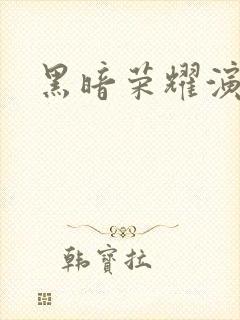 黑暗荣耀演
韩寶拉